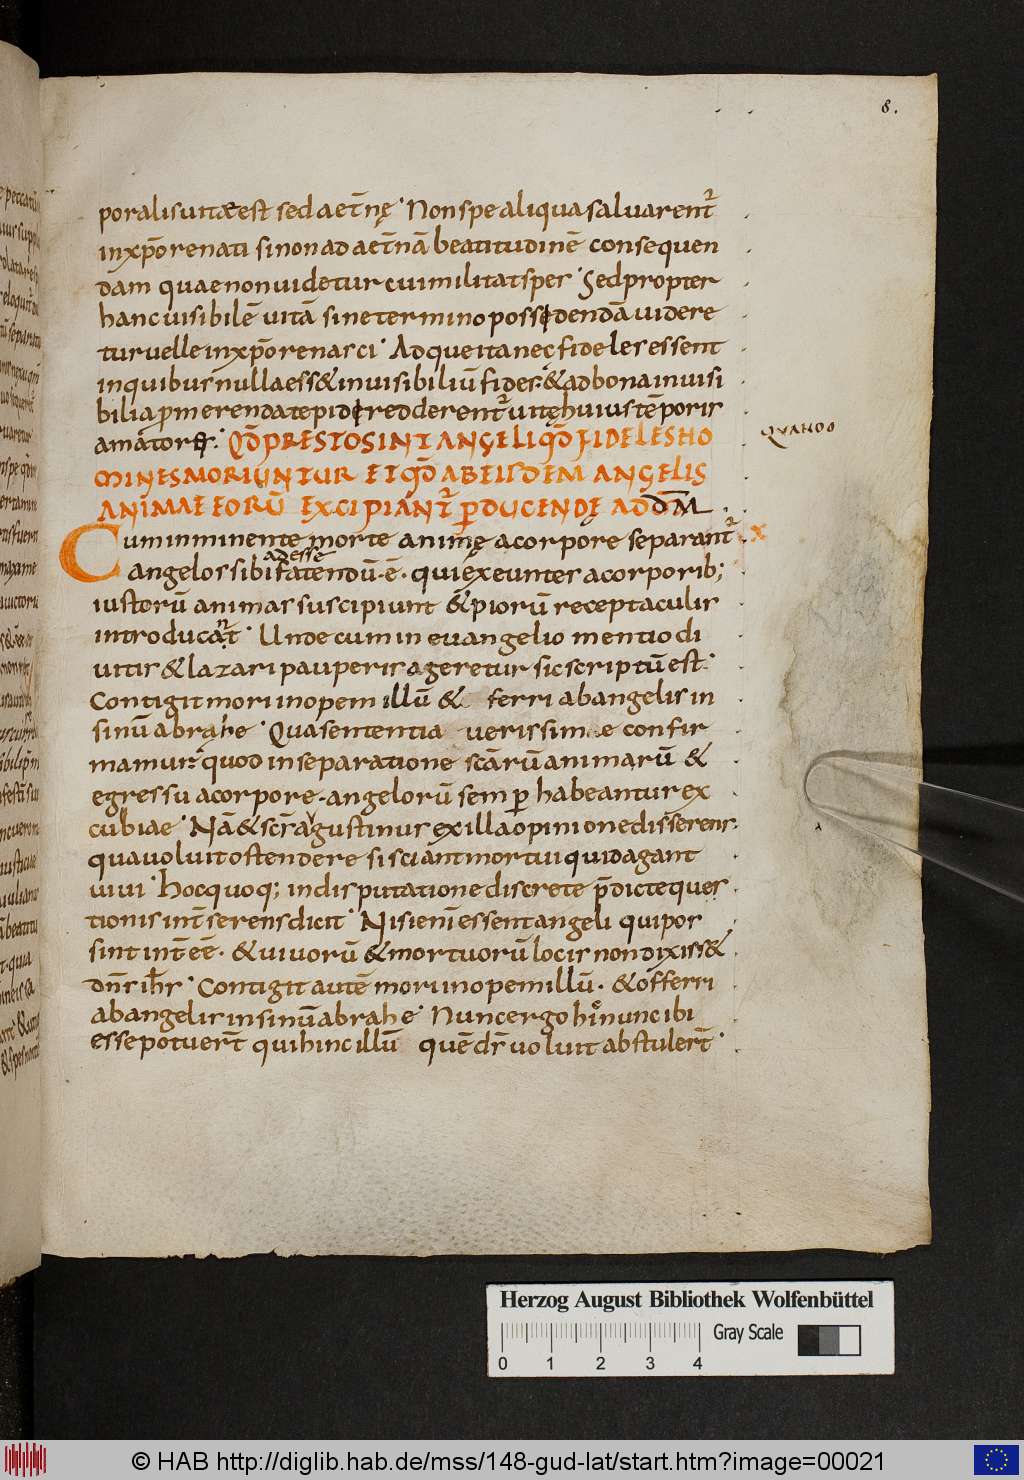 8.
poralis uitae est sed aet̄nę · Non spe aliqua saluarent᷑
in xp̄o renati si non ad aet̄nā beatitudinē consequen
dam quae non uidetur cui militat spes · Sed propter
hanc uisibilē uitā sine termino possidendā uidere
tur uelle in xp̄o renasci · Adque ita nec fideles essent
in quibus nulla ess& inuisibiliū fides · & ad bona inuisi
bilia p̄merenda tepide redderent᷑ uitę huius tēporis
amatores ·
QĐ PRESTO SINT ANGELI QĐ FIDELES HO
QUANDO
MINES MORIUNTUR ET QĐ AB EISDEM ANGELIS
ANIMAE EORŪ EXCIPIANT᷑ PDUCENDE AD DM̄
Cum imminente morte animę a corpore separant᷑ X
adesse
angelos sibi fatendū · ē · qui exeuntes a corporib;
iustorū animas suscipiunt & piorū receptaculis
introducant · Unde cum in euangelio mentio di
uitis & lazari pauperis ageretur sic scriptū est ·
Contigit mori inopem illū & ferri ab angelis in
sinū abrahe · Qua sententia uerissime confir
mamur quod in separatione scārū animarū &
egressu a corpore · angelorū semp habeantur ex
cubiae · Nā & scs̄ agustinus ex illa opinione disserens
qua uoluit ostendere si sciant mortui quid agant
uiui · hoc quoq; in disputatione discrete p̄dicte ques
tionis int̄serens dicit · Nisi enī essent angeli qui pos
sint int̄eē · & uiuorū & mortuorū locis non dixiss&
dn̄s ih̄s · Contigit autē mori inopem illū · & offerri
ab angelis in sinū abrahe · Nunc ergo hic nunc ibi
esse potuer̄t qui hinc illū quē ds̄ uoluit abstuler̄t ·
Herzog August Bibliothek Wolfenbüttel
Gray Scale
0 1 2 3 4
© HAB http://diglib.hab.de/mss/148-gud-lat/start.htm?image=00021